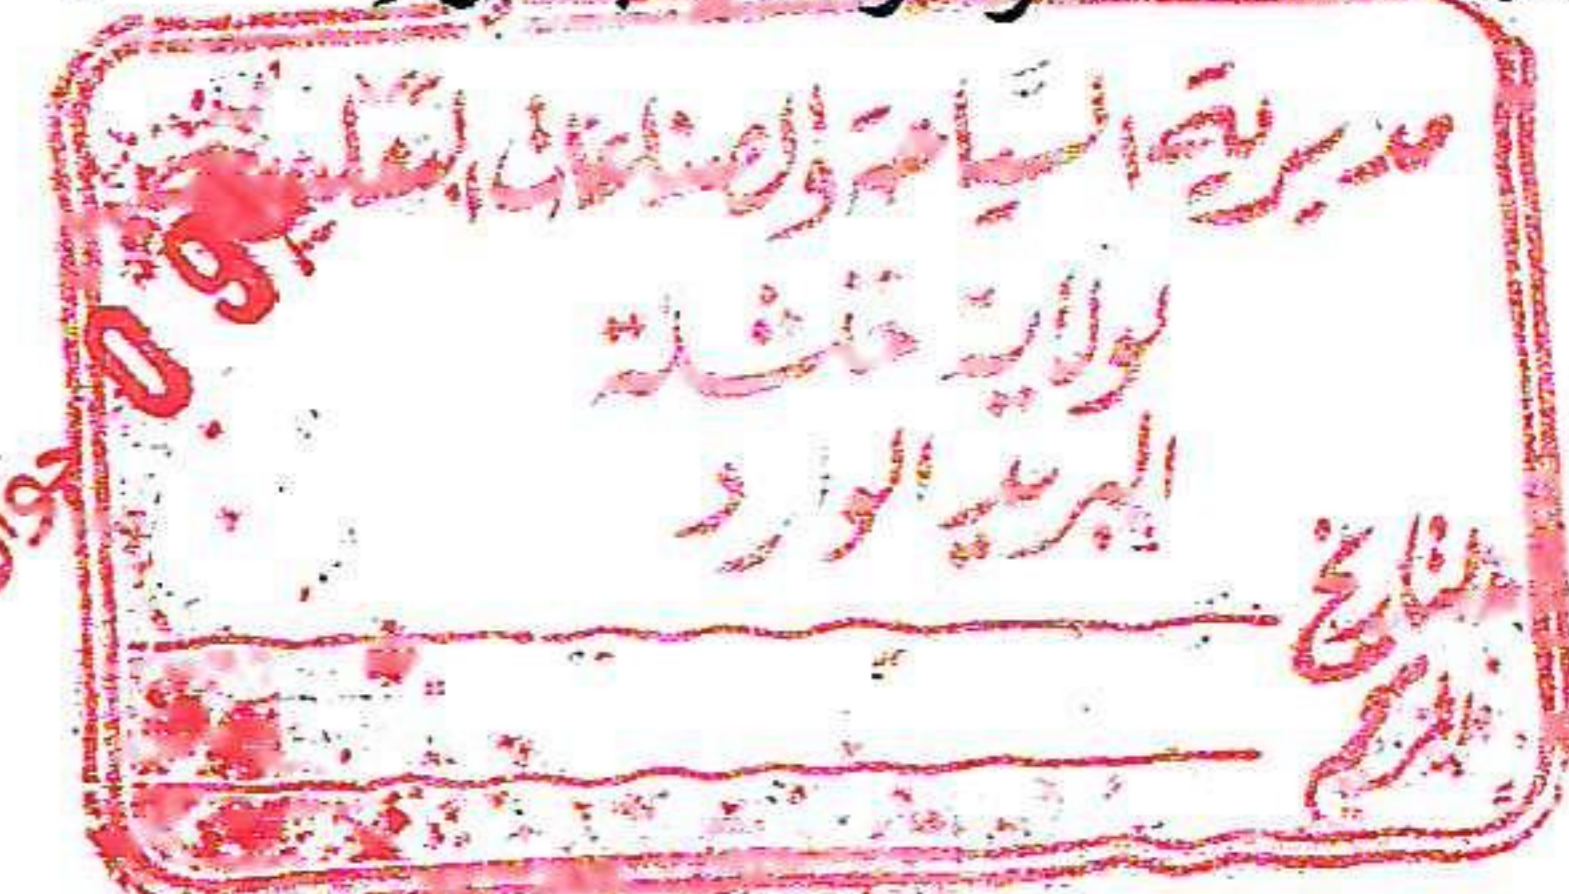 مديرية السياحة والصناعات التقليدية
لولاية خنشلة
البريد الوارد
التاريخ
الرقم
09